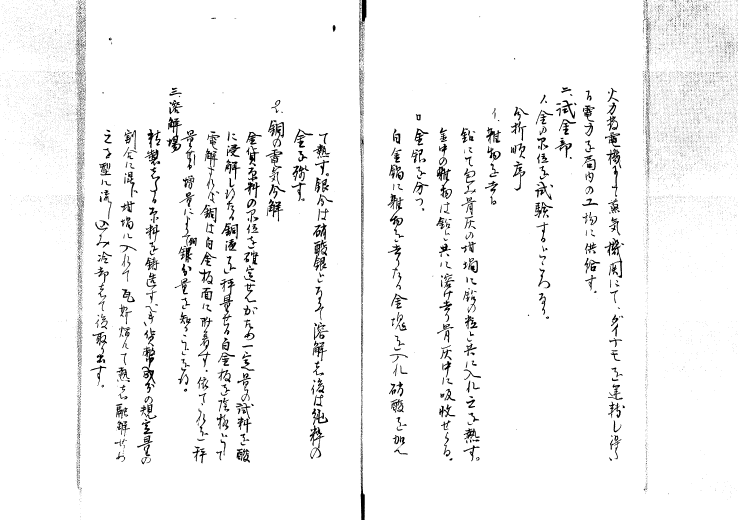 火力発電機より蒸気機関にて、ダイナモを運転し得たる電力を局内の工場に供給す。
二、試金部
1.金の品位を試験するところなり。
分析順序
イ.雑物を去る
鉛にて包み骨灰の坩堝に鉛の粒と共に入れ之を熱す。
金中の雑物は鉛と共に溶け去り骨灰中に吸收せらる。
ロ 金銀を分つ。
白金鍋に雑物を去りたる金塊を入れ硝酸を加へ
て熱す。銀分は硝酸銀となりて溶解し後は純粋の
金を残す。
2.銅の電気分解
金貨原料の品位を確定せんがため一定量の試料を酸
に溶解しめたる銅液を秤量せる白金板を陰極として
電解すれば銅は白金板面に附着す。依て之を秤
量する増量によりて銅分量を知ることを得。
三、溶解場
精製したる原料を鋳造すべき貨幣成分の規定量の
割合に混じ坩堝に入れて瓦斯焔にて熱し融解せしめ
之を型に流し込み冷却して後取り出す。